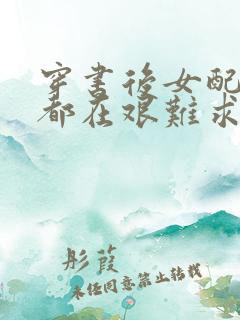 穿书後女配
都在艰難求
彤葭
未经同意禁止转载